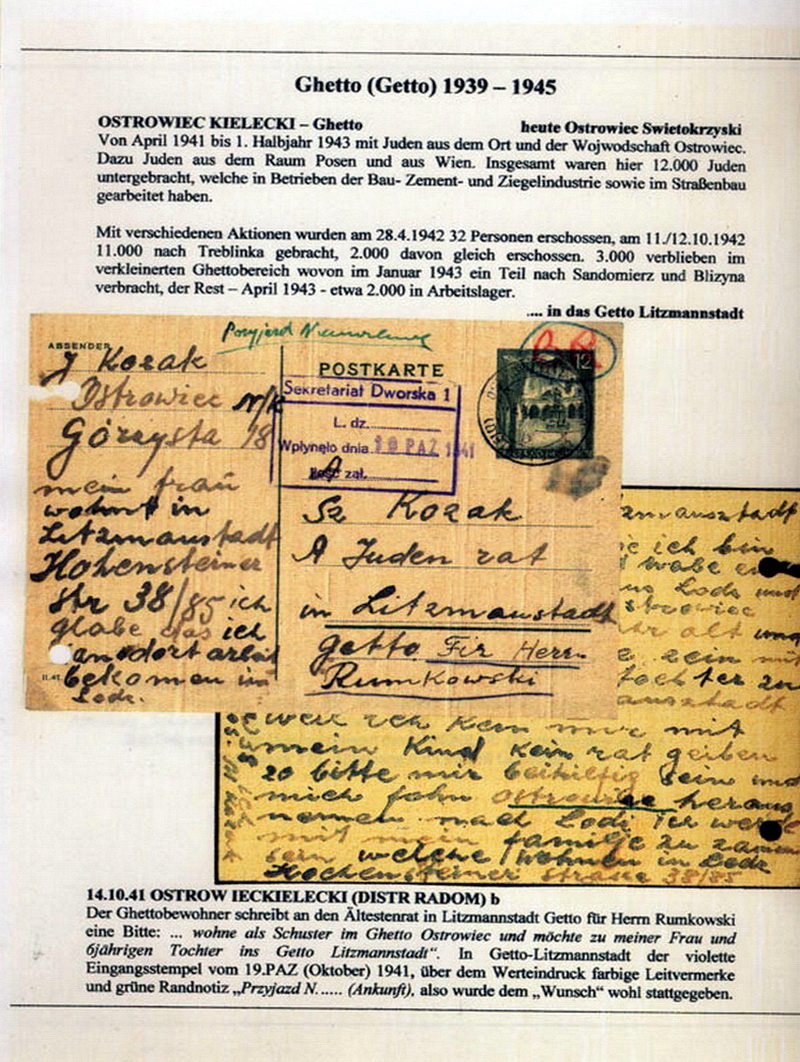 Ghetto (Getto) 1939 – 1945
OSTROWIEC KIELECKI – Ghetto heute Ostrowiec Swietokrzyski
Von April 1941 bis 1. Halbjahr 1943 mit Juden aus dem Ort und der Wojwodschaft Ostrowiec.
Dazu Juden aus dem Raum Posen und aus Wien. Insgesamt waren hier 12.000 Juden
untergebracht, welche in Betrieben der Bau- Zement- und Ziegelindustrie sowie im Straßenbau
gearbeitet haben.
Mit verschiedenen Aktionen wurden am 28.4.1942 32 Personen erschossen, am 11./12.10.1942
11.000 nach Treblinka gebracht, 2.000 davon gleich erschossen. 3.000 verblieben im
verkleinerten Ghettobereich wovon im Januar 1943 ein Teil nach Sandomierz und Blizyna
verbracht, der Rest – April 1943 - etwa 2.000 in Arbeitslager.
.... in das Getto Litzmannstadt
ABSENDER
J Kozak
Ostrowiec N/K
Górzysta 18
mein frau
wohnt in
Litzmanstadt
Hohensteiner
str 38/85 ich
glabe das ich
an dort arbeit
bekomen in
Lodz.
II.41
POSTKARTE
12
Sekretariat Dworska 1
L. dz.
Wpłynęło dnia 19 PAZ 1941
Ilość zał.
Sz Kozak
A Juden rat
in Litzmanstadt
getto Fir Herrn
Rumkowski
ich bin
Lodz und
ostrowiec
alt und
sein mit
tochter zu
weil ich ken mir mit
mein Kind kein rat geiben
zo bitte mir beihilflig sein und
mich fohn ostrowiec heraus
nemen nach Lodz
mit mein familje zu
sein welche wohnen in Lodz
Hochensteiner strase 38/85
14.10.41 OSTROW IECKIELECKI (DISTR RADOM) b
Der Ghettobewohner schreibt an den Ältestenrat in Litzmannstadt Getto für Herrn Rumkowski
eine Bitte: ... wohne als Schuster im Ghetto Ostrowiec und möchte zu meiner Frau und
6jährigen Tochter ins Getto Litzmannstadt“. In Getto-Litzmannstadt der violette
Eingangsstempel vom 19.PAZ (Oktober) 1941, über dem Werteindruck farbige Leitvermerke
und grüne Randnotiz „Przyjazd N..... (Ankunft), also wurde dem „Wunsch“ wohl stattgegeben.